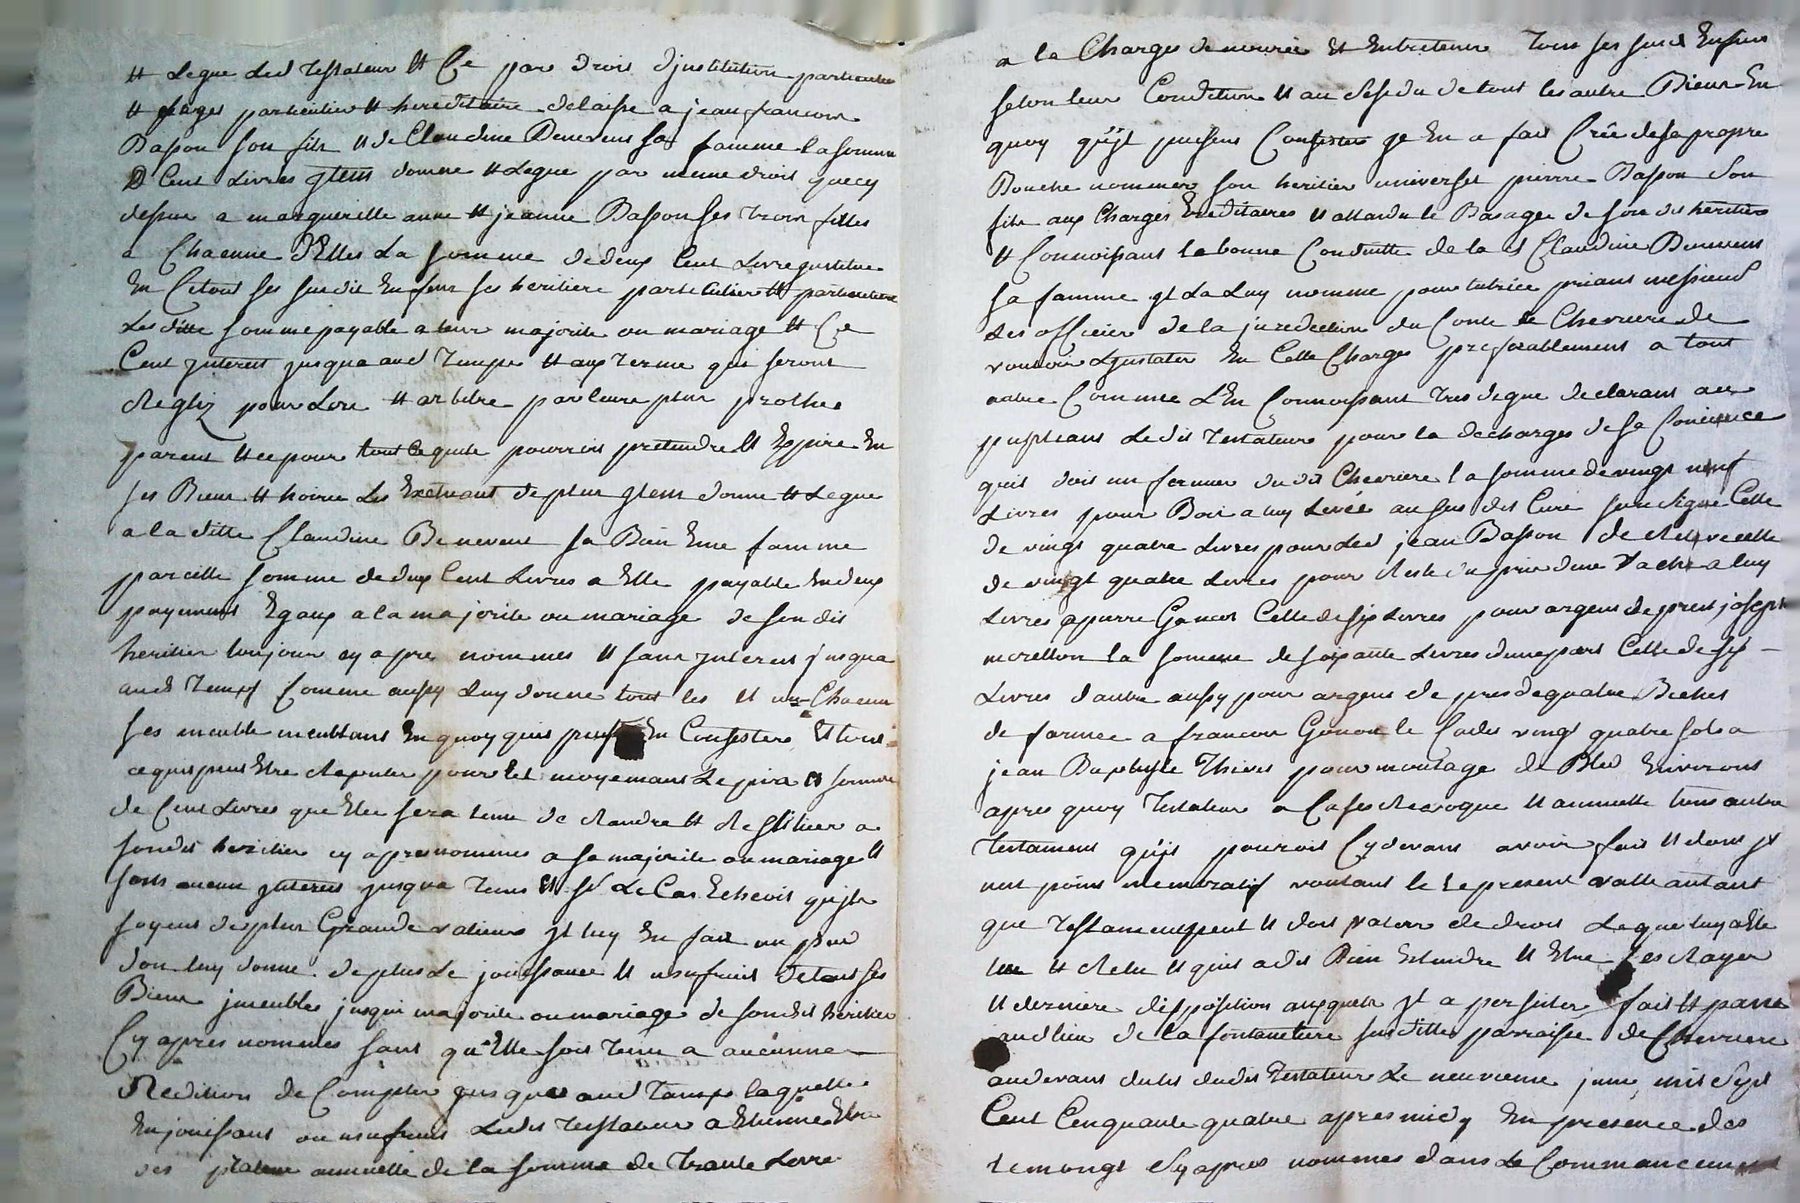 et Legue Led Testateur et Ce par droit djnstitution particuliere
et particulier et hereditaire delaisse a jean francois
Basson son fils et de Claudine Benevens sa famme la somme
D Cent Livres jtem donne et Legue par meme droit que cy
dessus a margueritte anne et jeanne Basson ses trois filles
a Chacune d'Elles La somme de deux Cent Livre justitue
En Ce tout ses susdit Enfans ses heritiere particulier et particuliere
Les ditte somme payable a leur majorite ou mariage et Ce
Cent jnterest jusqua aud Temps et aux Terme qui seront
Regléz pour Lors et arbitre par leurs plus proche
parent et ce pour tout ce quils pourroit pretendre et Espere En
ses Biens et hoirie Les Excluant de plus jtem donne et Legue
a la ditte Claudine Benevent sa Bien Eme famme
pareille somme de deux Cent Livres a Elle payable En deux
payement Egaux a la majorite ou mariage de son dit
heritier toujour cy apres nommes et sans jnterest jusqua
aud Temps Comme aussy Luy donne tout les et un Chacun
ses meuble meublant En quoy quis puisse En Consister et tout
ce quis peut Etre Reputer pour tel moyemant Le prix et somme
de Cent Livres que Elle sera tenu de Randre et Restituer a
sondit heritier cy apres nommes a sa majorite ou mariage et
sans aucun jnterest jusqua Tems et sy Le Cas Echeoit quils
soyent de plus Grande valeurs jl luy En fait un pur
don luy donne de plus Le jouissance et usufruit de tous ses
Biens jmeubles jusqui majorite ou mariage de sondit heritier
Cy apres nommes sans qu'Elle soit tenu a aucunne
Redition de Compter jusques aud Tamps laquelle
En jouissant ou usufruit Ledit Testateur a Etienne
annuelle de la somme de Trante Livre
a la Charges de nourir et Entretenir Tous ses susd Enfans
selon leur Condition et au Residu de tout les autre Biens En
quoy qu'jl puissent Consister je En a fait Crée de sa propre
Bouche nommer son heritier universel pierre Basson son
fils aux Charges Ereditaires et attandu le Basage de son dit heritier
et Connoissant la bonne Conduitte de la d Claudine Benevens
sa famme jl La Luy nomme pour tutrice priant messieurs
Les officier de la juredection du Conte de Chevriere de
vouloir En Cette Charge preferablement a tout
autre Comme L'En Connoissant Tres digne declarant au
Ledit Testateur pour la decharges de sa Concience
quil doit un fermier dudit Chevriere la somme de vingt neuf
Livres pour Bois a luy Livré au sus dit Curé Celle
de vingt quatre Livres pour Led jean Basson de celle
de vingt quatre Livres pour Reste du prix dune Vache a luy
Livres a pierre Gonon Celle de six Livres pour argent de prest joseph
morellon la somme de soixante Livres dune part Celle de six
Livres dautre aussy pour argent de prest de quatre Bichet
de a francois Gonon le Cadet vingt quatre sols a
jean Baptiste Thivet pour moulage de Bled Environt
apres quoy Testateur a Casse Revoque et annulle tous autre
Testament qu'jl pouroit Cy devant avoir fait et dont jl
nest point memoratif voulant le le present valle autant
que Testament peut et doit valoir de droit Leque luy a Ete
lue et Relu et quis a dit Bien Entendre et Etre Les
et derniere disposition auxquels jl a persister fait et passe
aud lieu de la fontaniere susditte parroisse de Chevriere
au devant dudit Testateur Le neuvieme mil sept
Cent Cinquante quatre apres midy En presence des
Temongt Cy apres nommes dans Le Commancement